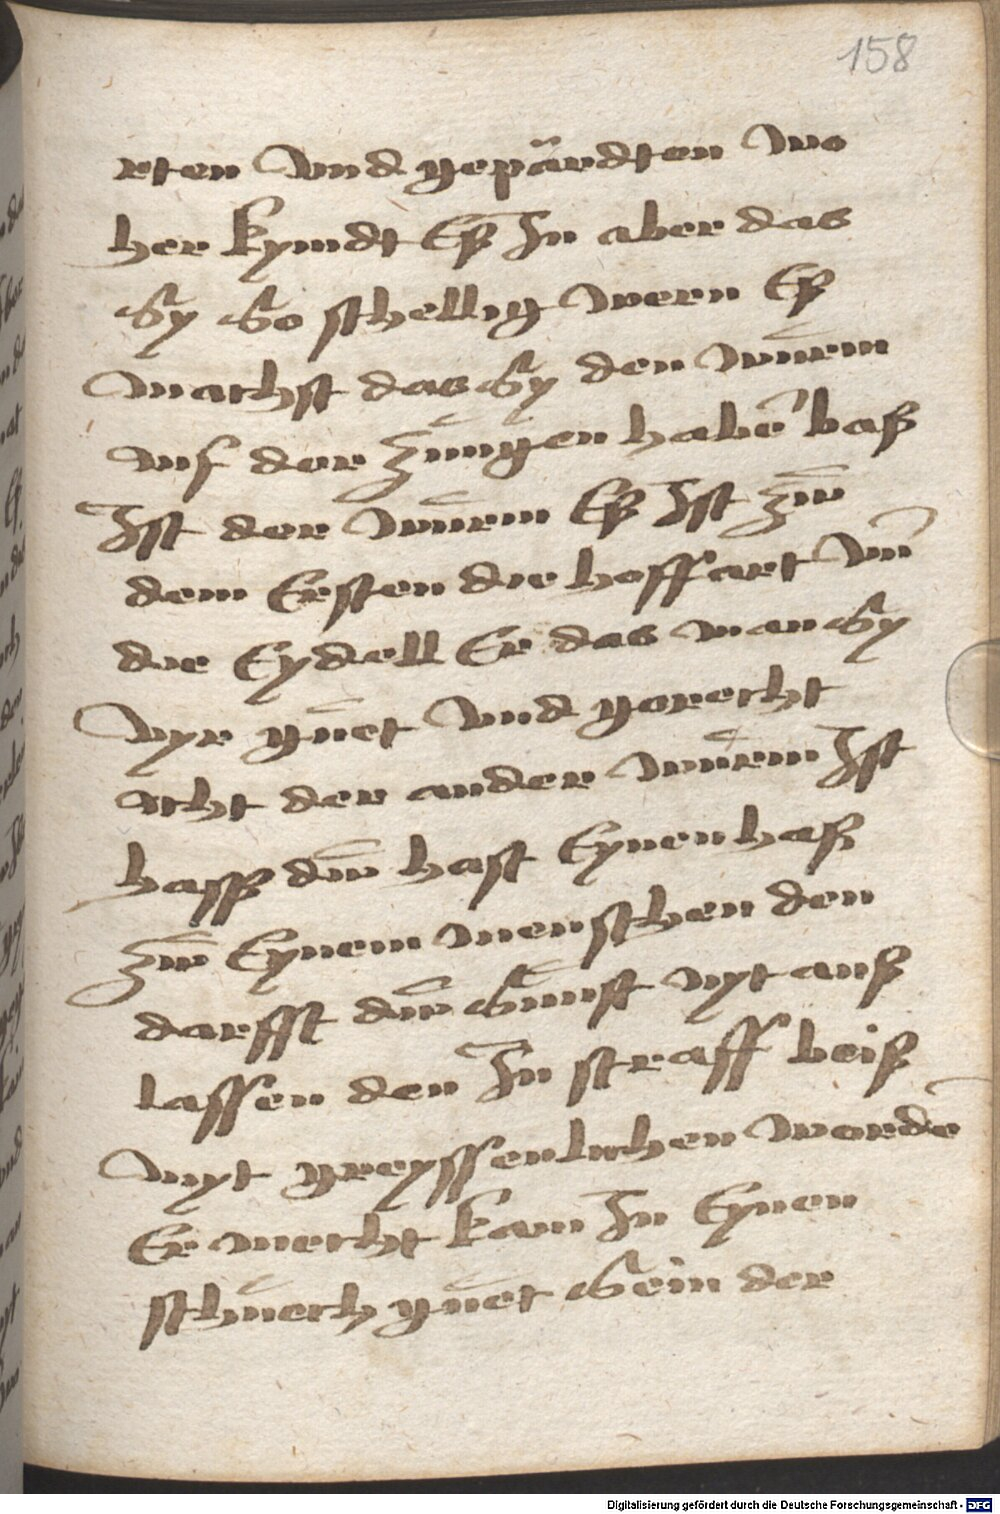 158
rten vnd gepärdten wo
her kymdt Eß In aber das
Sy So schellig wern Eß
machst das Sy den wurem
auf der zungen haben baß
Ist der wurem Eß Ist zu
dem Ersten die hoffart vn̄
die Eydell Er das man Sy
vyr guet vnd gerecht
acht der ander wurem Ist
hasß du hast Eynen haß
zu Eynem menschen den
darfst du Sunst nyt auß
lassen den In straff beiß
myt greyssenlichen worde̅
Er mecht kam In Eynen
schuech guet Sein der
Digitalisierung gefördert durch die Deutsche Forschungsgemeinschaft - DFG